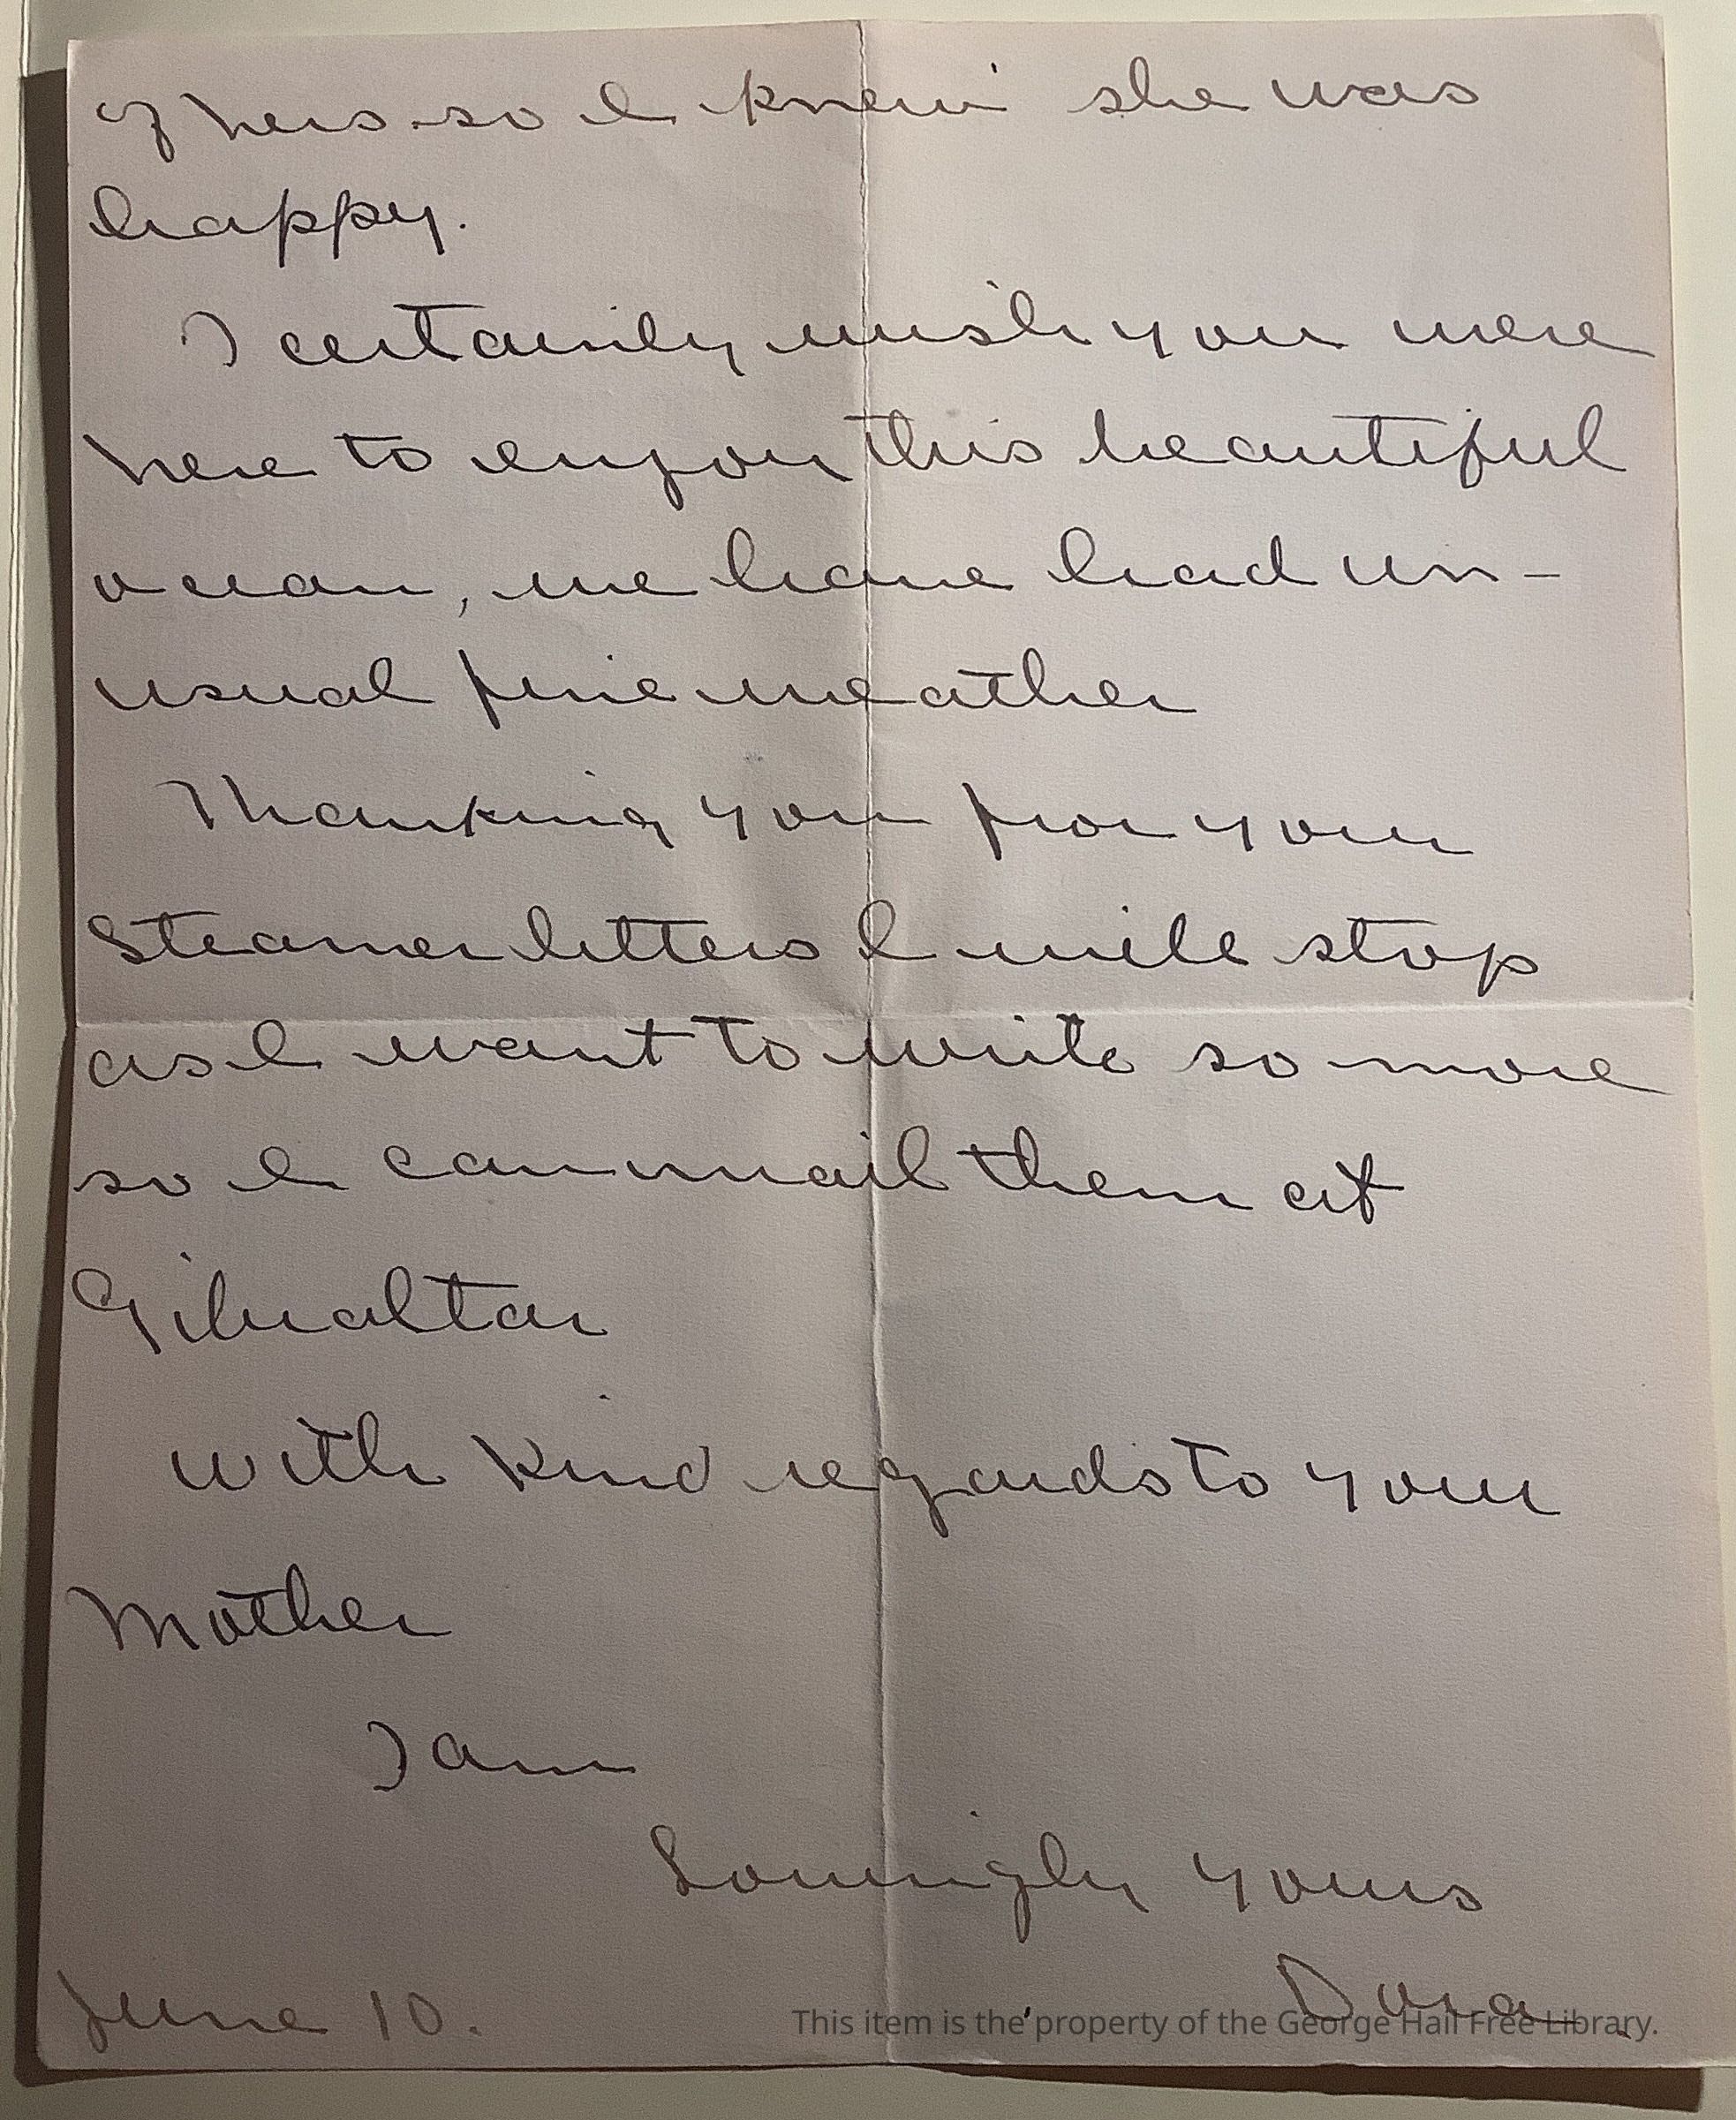 of hers so I knew she was
happy.
I certainly wish you were
here to enjoy this beautiful
ocean, we have had un-
usual fine weather
Thanking you for your
Steamer letters I will stop
as I want to write so more
so I can mail them at
Gibraltar
With kind regards to your
Mother
I am
Lovingly yours
Dora.
June 10.
This item is the property of the George Hail Free Library.